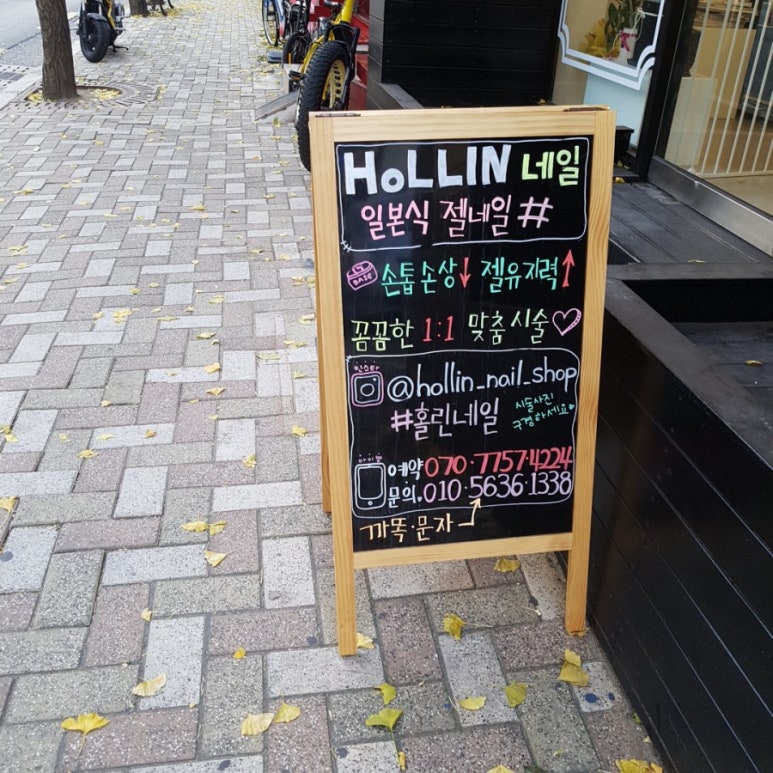 HoLLIN 네일
일본식 젤네일#
BASE 손톱손상↓ 젤유지력↑
꼼꼼한 1:1 맞춤시술♡
인스타
@hollin_nail_shop
#홀린네일
시술사진
구경하세요
예약 070·7757·4224
문의 010·5636·1338
까똑·문자